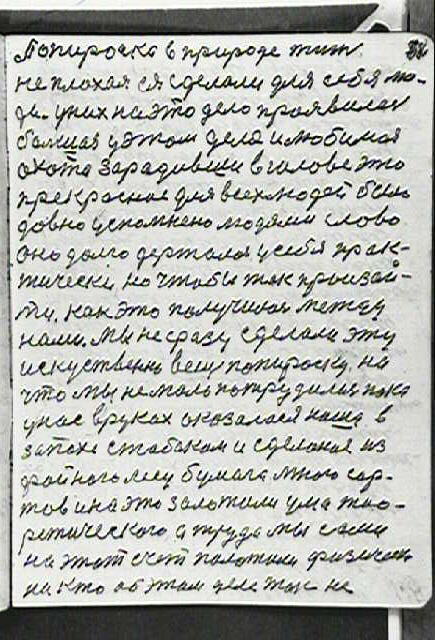 Попироска в природе тип
не плохая ея сделали для себя лю-
ди. у них на это дело проявилась
большая у этом дела и любимая
охота зарадивши в голове это
прекрасное для всех людей было
довно успомнено людями слово
оно долго держалося у себя прак-
тически, но чтобы так произой-
ти, как это получилося между
нами. Мы не сразу сделали эту
искуственно вещ попироску, на
что мы немало потрудилися пока
у нас в руках оказалася наша в
запасе с табаком и сделаная из
бумага много сор-
тов и на это заложили ума тио-
ретического а труда мы свои
на этот счет положили физечски
на кто об этом деле так не